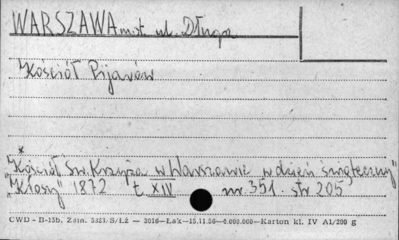 WARSZAWA m.st. ul. Długa
Kościół Pijarów
*
"Kościół Św. Krzyża w Warszawie w dzień świąteczny"
"Kłosy" 1872 t XIV nr 351 str 205
CWD - D-15b. Zam. 5323/S/Łż — 3016—Łak—15.11.56—6.000.000—Karton kl. IV A1/200 g